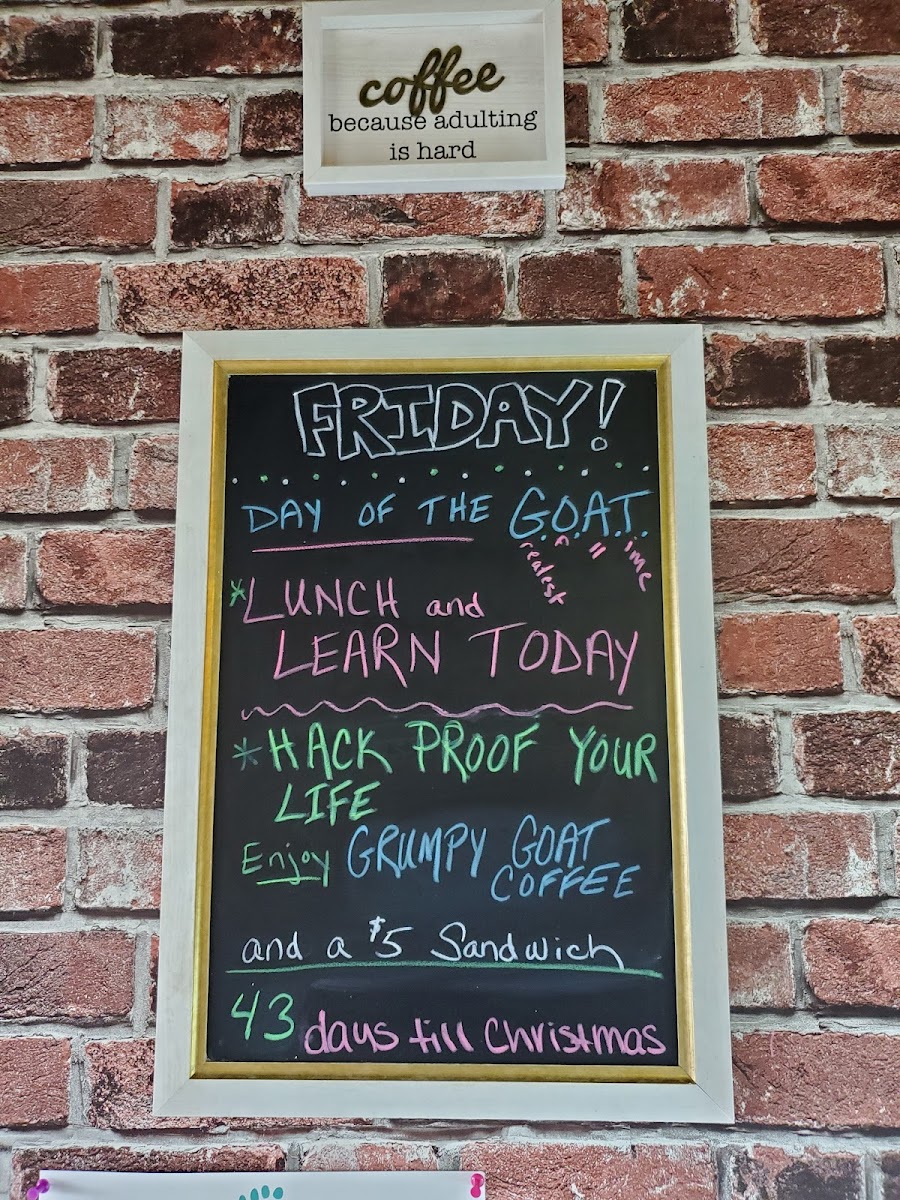 coffee
because adulting
is hard
FRIDAY!
DAY OF THE G.O.A.T.
reatest f ll ime
*LUNCH and
LEARN TODAY
*HACK PROOF YOUR
LIFE
Enjoy GRUMPY GOAT
COFFEE
and a $5 Sandwich
43 days till Christmas